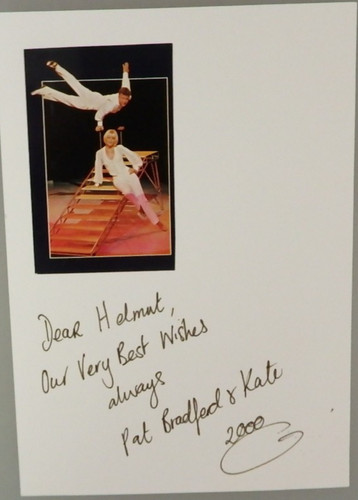 Dear Helmut,
Our Very Best Wishes
always
Pat Bradford & Kate
2000